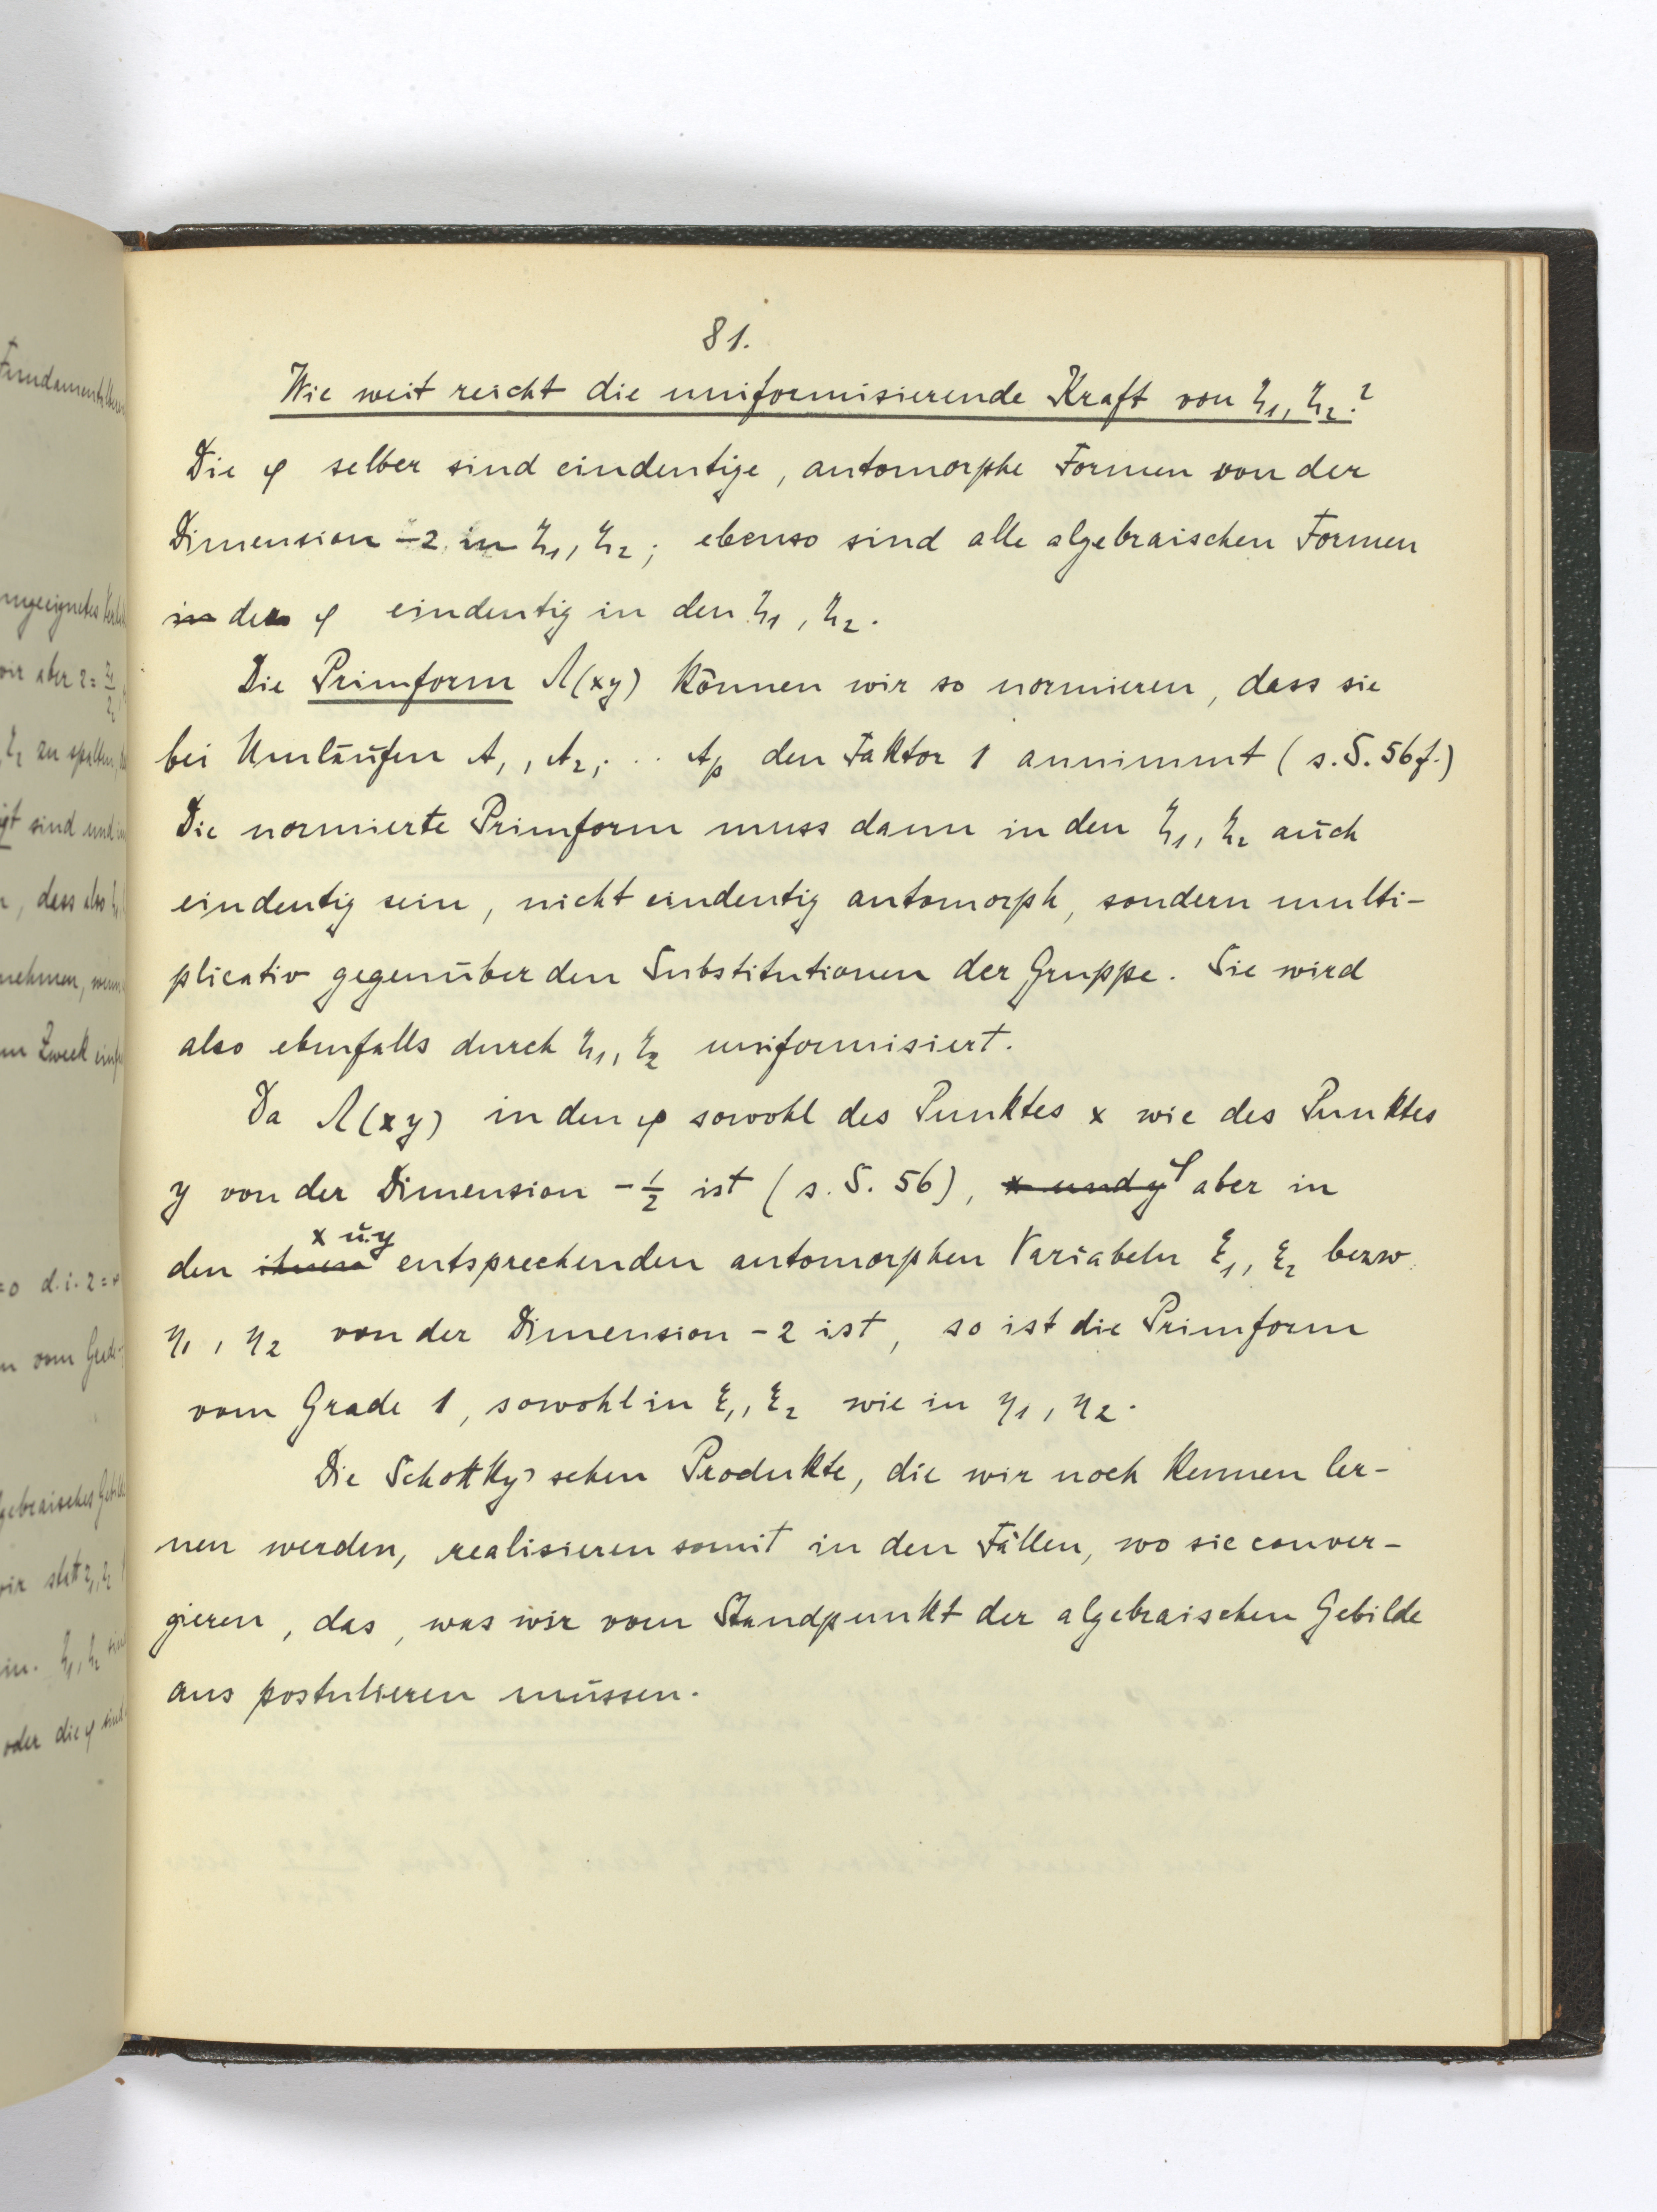 81.
Wie weit reicht die uniformisierende Kraft von ζ₁, ζ₂?
Die φ selber sind eindeutige, automorphe Formen von der
Dimension -2 in ζ₁, ζ₂; ebenso sind alle algebraischen Formen
in der φ eindeutig in den ζ₁, ζ₂.
Die Primform Λ(xy) können wir so normieren, dass sie
bei Umläufen A₁, A₂, .. Aₚ den Faktor 1 annimmt (s. S. 56f.)
Die normierte Primform muss dann in den ζ₁, ζ₂ auch
eindeutig sein, nicht eindeutig automorph, sondern multi-
plicativ gegenüber den Substitutionen der Gruppe. Sie wird
also ebenfalls durch ζ₁, ζ₂ uniformisiert.
Da Λ(xy) in den φ sowohl des Punktes x wie des Punktes
y von der Dimension -½ ist (s. S. 56), x und y φ aber in
x u. y
den ihnen entsprechenden automorphen Variabeln ξ₁, ξ₂ bezw.
η₁, η₂ von der Dimension -2 ist, so ist die Primform
vom Grade 1, sowohl in ξ₁, ξ₂ wie in η₁, η₂.
Die Schottky'schen Produkte, die wir noch kennen ler-
nen werden, realisieren somit in den Fällen, wo sie conver-
gieren, das, was wir vom Standpunkt der algebraischen Gebilde
aus postulieren müssen.